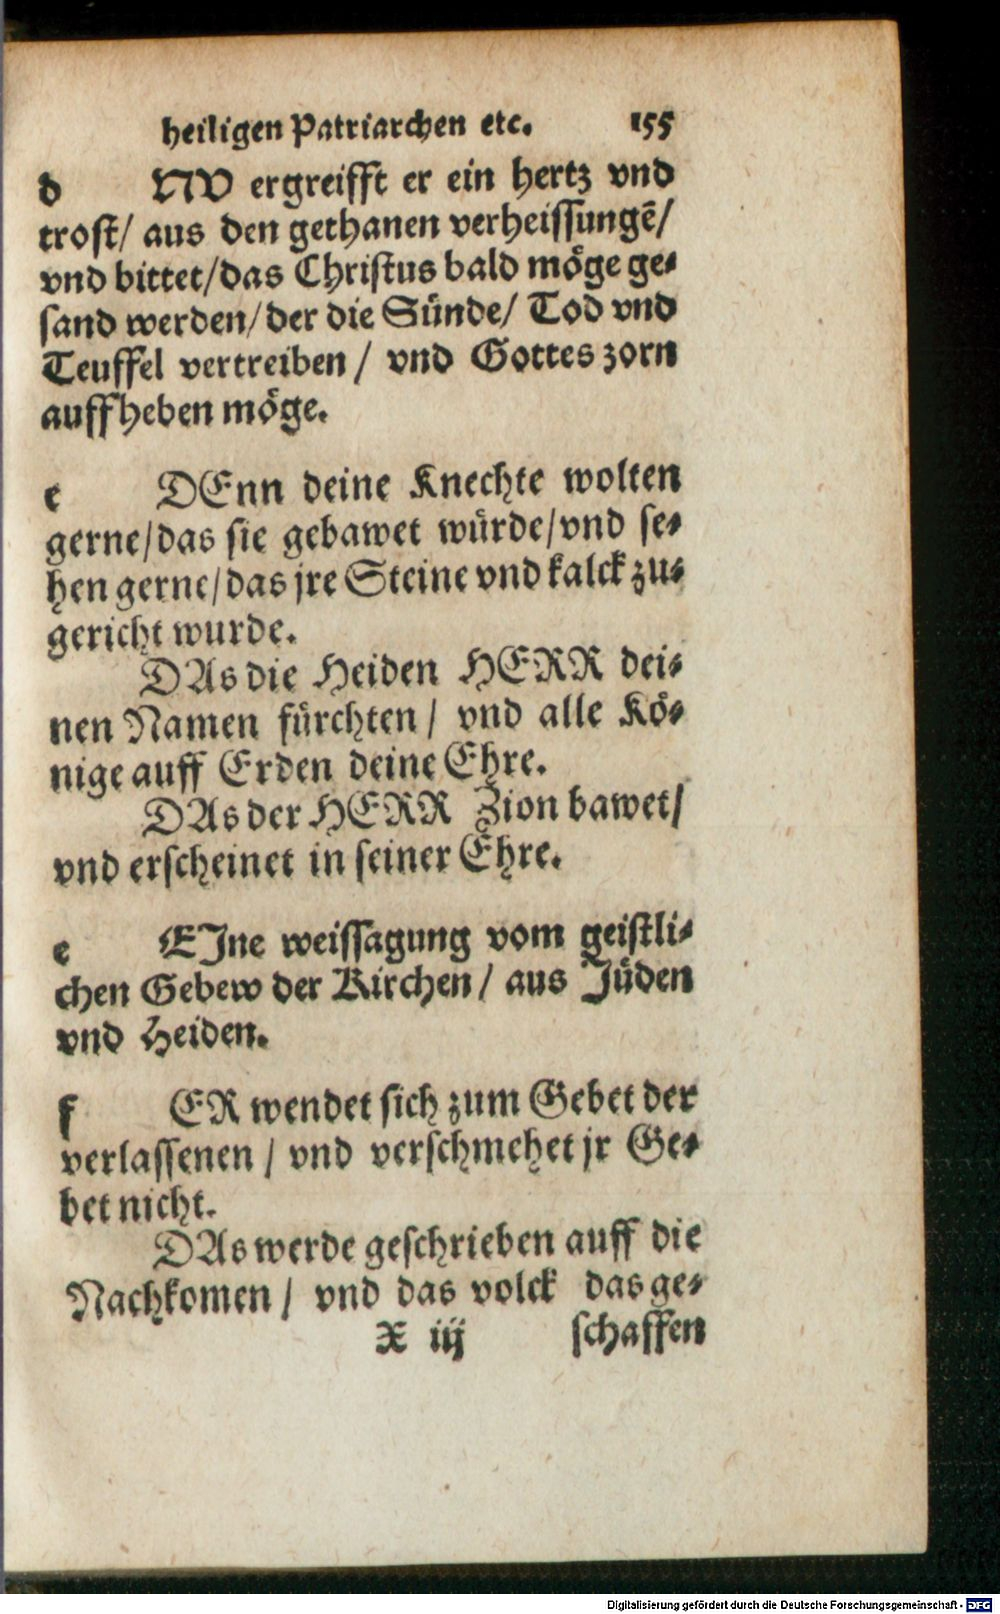 heiligen Patriarchen etc. 155
d NV ergreifft er ein hertz vnd
trost/ aus den gethanen verheissungẽ/
vnd bittet/das Christus bald möge ge-
sand werden/der die Sünde/ Tod vnd
Teuffel vertreiben / vnd Gottes zorn
auffheben möge.
e DEnn deine Knechte wolten
gerne/das sie gebawet würde/vnd se-
hen gerne/das jre Steine vnd kalck zu-
gericht wurde.
DAs die Heiden HERR dei-
nen Namen fürchten / vnd alle Kö-
nige auff Erden deine Ehre.
DAs der HERR Zion bawet/
vnd erscheinet in seiner Ehre.
e EJne weissagung vom geistli-
chen Gebew der Kirchen / aus Jüden
vnd Heiden.
f ER wendet sich zum Gebet der
verlassenen / vnd verschmehet jr Ge-
bet nicht.
DAs werde geschrieben auff die
Nachkomen / vnd das volck das ge-
X iij schaffen
Digitalisierung gefördert durch die Deutsche Forschungsgemeinschaft - DFG